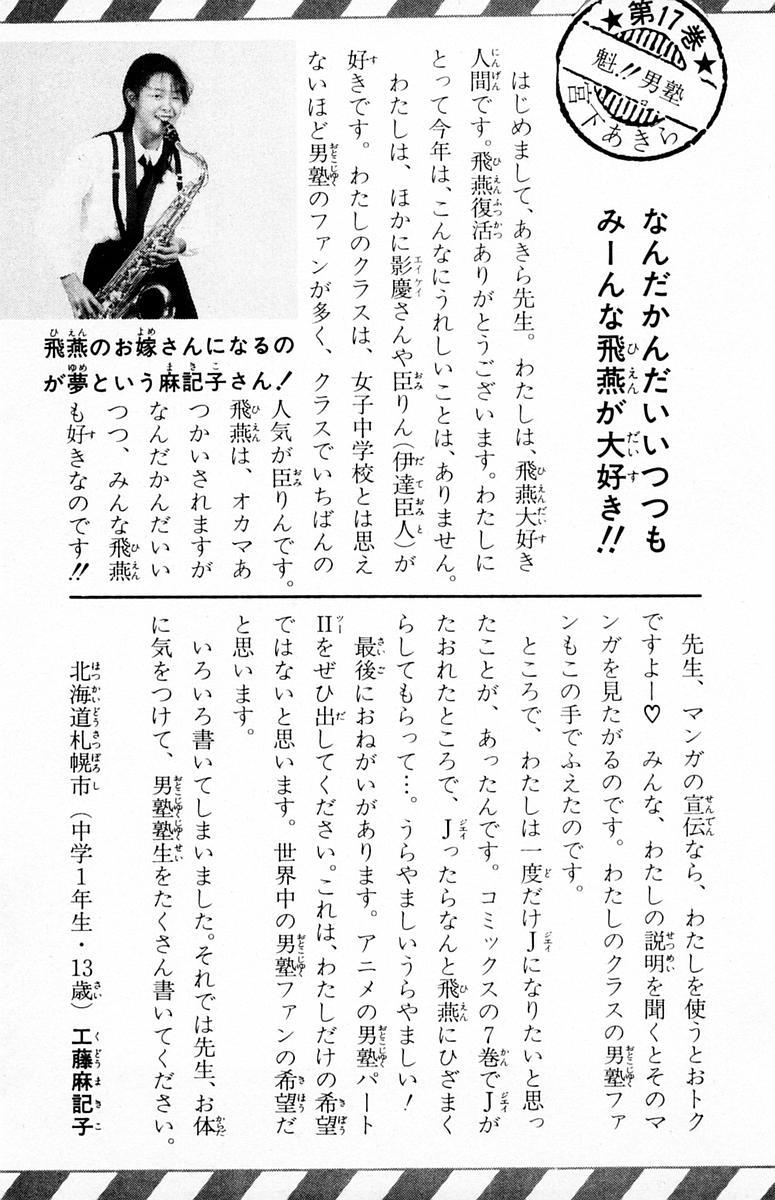 ★第17巻★
魁!!男塾
宮下あきら
なんだかんだいいつつも
みーんな飛燕が大好き!!
はじめまして、あきら先生。わたしは、飛燕大好き
人間です。飛燕復活ありがとうございます。わたしに
とって今年は、こんなにうれしいことは、ありません。
わたしは、ほかに影慶さんや臣りん(伊達臣人)が
好きです。わたしのクラスは、女子中学校とは思え
ないほど男塾のファンが多く、クラスでいちばんの
人気が臣りんです。
飛燕は、オカマあ
つかいされますが
なんだかんだいい
つつ、みんな飛燕
も好きなのです!!
飛燕のお嫁さんになるの
が夢という麻記子さん!
先生、マンガの宣伝なら、わたしを使うとおトク
ですよー♡ みんな、わたしの説明を聞くとそのマ
ンガを見たがるのです。わたしのクラスの男塾ファ
ンもこの手でふえたのです。
ところで、わたしは一度だけJになりたいと思っ
たことが、あったんです。コミックスの7巻でJが
たおれたところで、Jったらなんと飛燕にひざまく
らしてもらって…。うらやましいうらやましい!
最後におねがいがあります。アニメの男塾パート
IIをぜひ出してください。これは、わたしだけの希望
ではないと思います。世界中の男塾ファンの希望だ
と思います。
いろいろ書いてしまいました。それでは先生、お体
に気をつけて、男塾塾生をたくさん書いてください。
北海道札幌市(中学1年生・13歳) 工藤麻記子